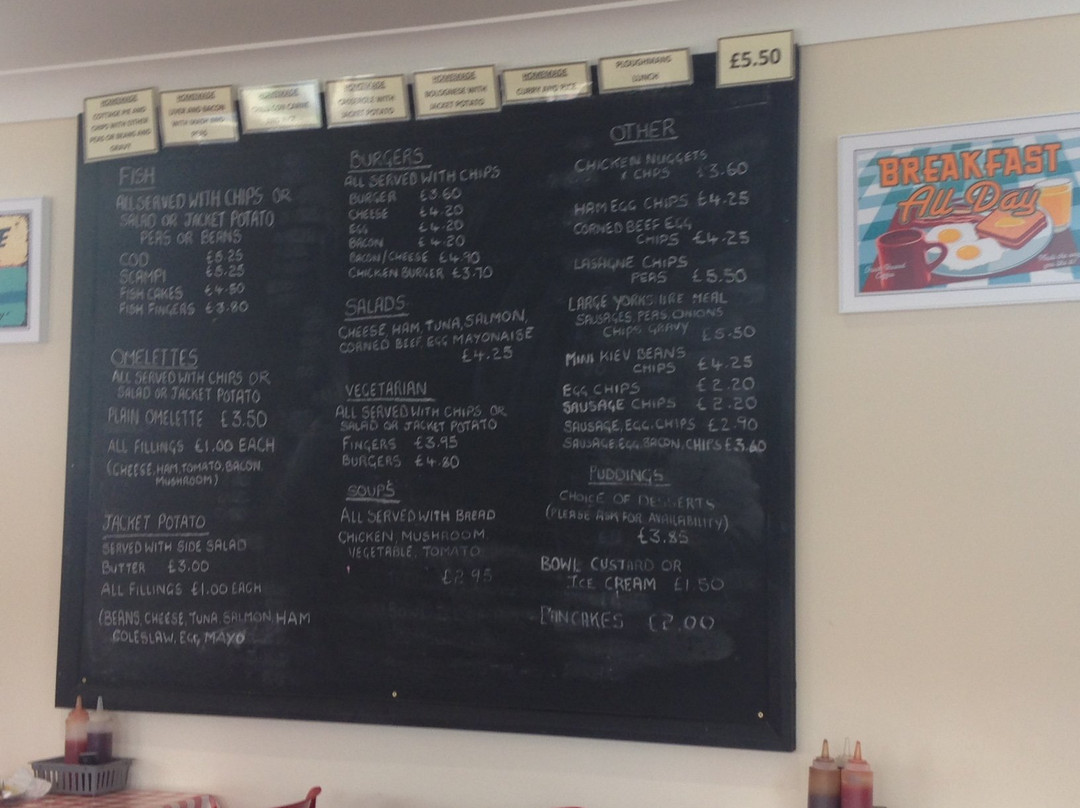 HOMEMADE
COTTAGE PIE AND
CHIPS WITH EITHER
PEAS OR BEANS AND
GRAVY
HOMEMADE
LIVER AND BACON
WITH MASH AND
PEAS
HOMEMADE
CHILLI CON CARNE
AND RICE
HOMEMADE
CASSEROLE WITH
JACKET POTATO
HOMEMADE
BOLOGNESE WITH
JACKET POTATO
HOMEMADE
CURRY AND RICE
PLOUGHMANS
LUNCH
£5.50
FISH
ALL SERVED WITH CHIPS OR
SALAD OR JACKET POTATO
PEAS OR BEANS
COD £5.25
SCAMPI £5.25
FISH CAKES £4.50
FISH FINGERS £3.80
OMELETTES
ALL SERVED WITH CHIPS OR
SALAD OR JACKET POTATO
PLAIN OMELETTE £3.50
ALL FILLINGS £1.00 EACH
(CHEESE, HAM, TOMATO, BACON,
MUSHROOM)
JACKET POTATO
SERVED WITH SIDE SALAD
BUTTER £3.00
ALL FILLINGS £1.00 EACH
(BEANS, CHEESE, TUNA, SALMON, HAM
COLESLAW, EGG, MAYO
BURGERS
ALL SERVED WITH CHIPS
BURGER £3.60
CHEESE £4.20
EGG £4.20
BACON £4.20
BACON/CHEESE £4.90
CHICKEN BURGER £3.70
SALADS
CHEESE, HAM, TUNA, SALMON,
CORNED BEEF, EGG MAYONAISE
£4.25
VEGETARIAN
ALL SERVED WITH CHIPS OR
SALAD OR JACKET POTATO
FINGERS £3.95
BURGERS £4.80
SOUPS
ALL SERVED WITH BREAD
CHICKEN, MUSHROOM
VEGETABLE, TOMATO
£2.95
OTHER
CHICKEN NUGGETS
& CHIPS £3.60
HAM EGG CHIPS £4.25
CORNED BEEF EGG
CHIPS £4.25
LASAGNE CHIPS
PEAS £5.50
LARGE YORKSHIRE MEAL
SAUSAGES, PEAS, ONIONS
CHIPS GRAVY £5.50
MINI KIEV BEANS
CHIPS £4.25
EGG CHIPS £2.20
SAUSAGE CHIPS £2.20
SAUSAGE, EGG, CHIPS £2.90
SAUSAGE, EGG, BACON, CHIPS £3.60
PUDDINGS
CHOICE OF DESSERTS
(PLEASE ASK FOR AVAILABILITY)
£3.85
BOWL CUSTARD OR
ICE CREAM £1.50
PANCAKES £2.00
BREAKFAST
All-Day